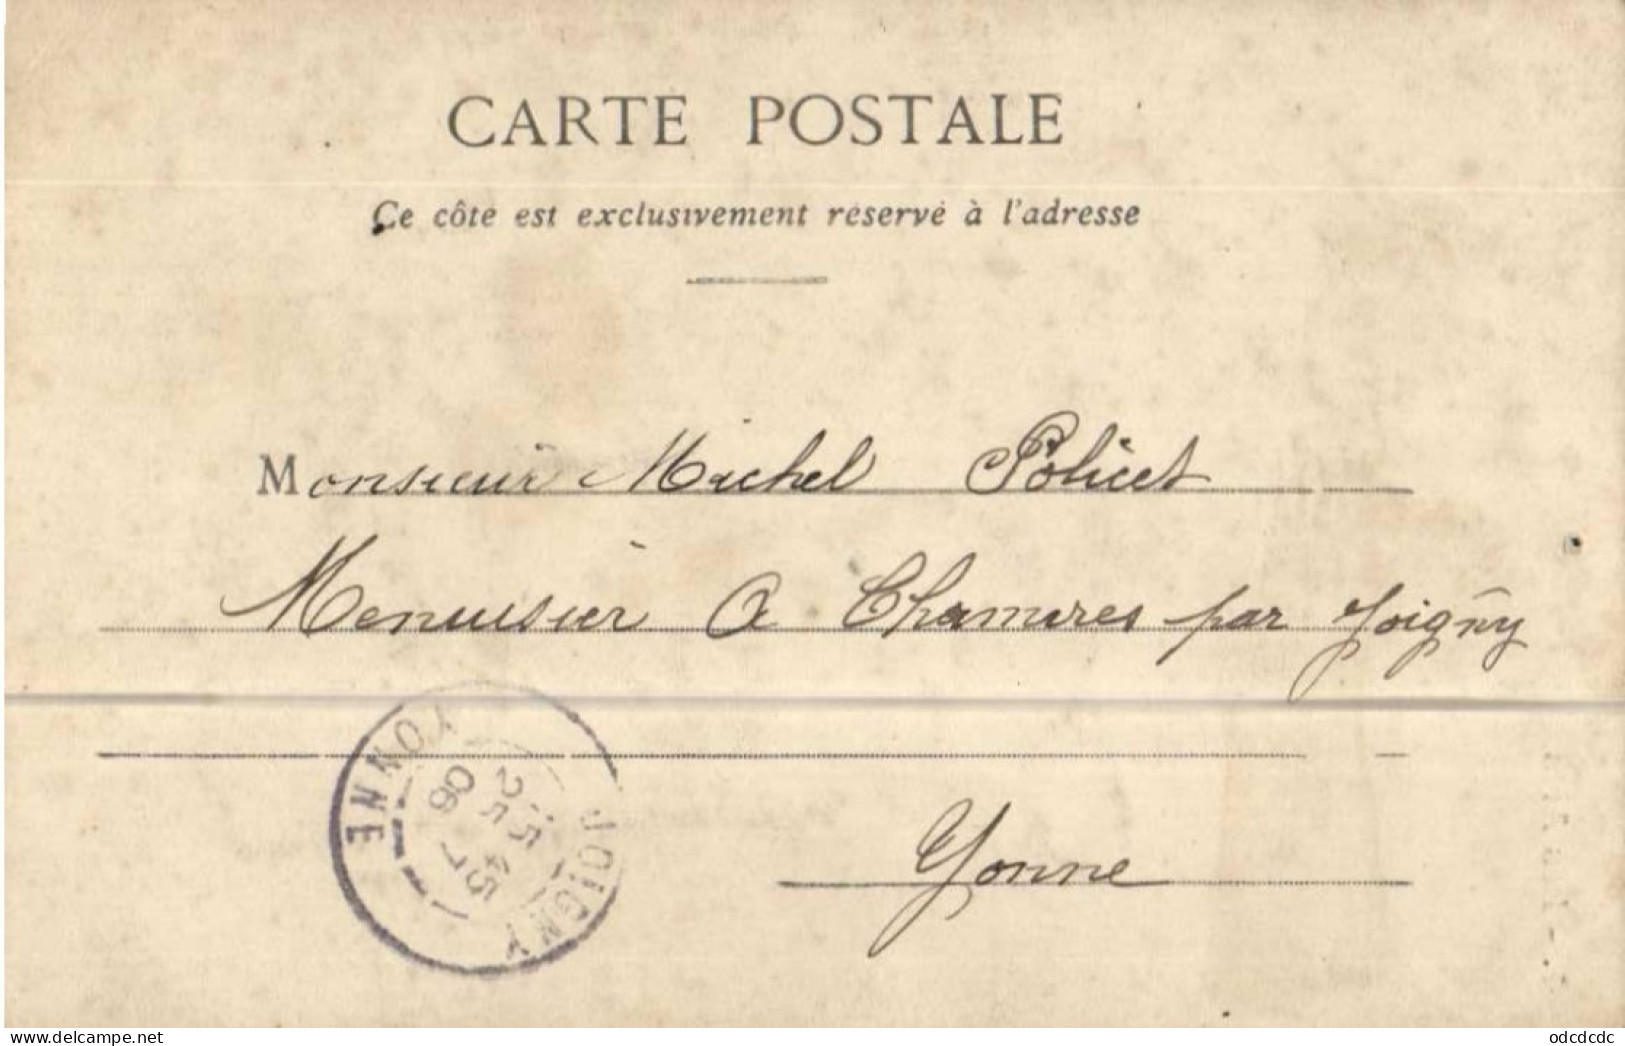 CARTE POSTALE
Ce côté est exclusivement réservé à l'adresse
Monsieur Michel Policet
Menuisier à Chamvres par Joigny
Yonne
JOIGNY
YONNE
odcdcdc
delcampe.net